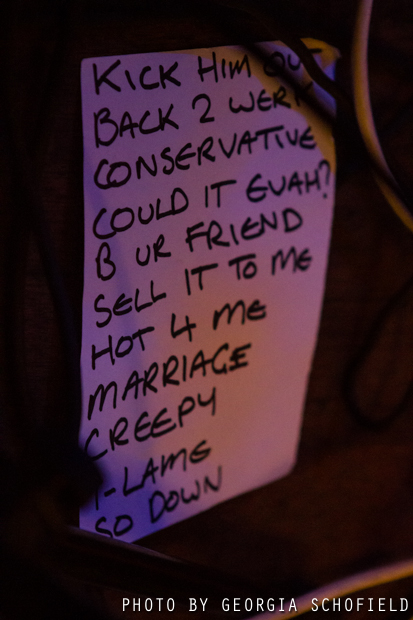 KICK HIM OUT
BACK 2 WERK
CONSERVATIVE
COULD IT EVAH?
B UR FRIEND
SELL IT TO ME
HOT 4 ME
MARRIAGE
CREEPY
-LAME
SO DOWN
PHOTO BY GEORGIA SCHOFIELD